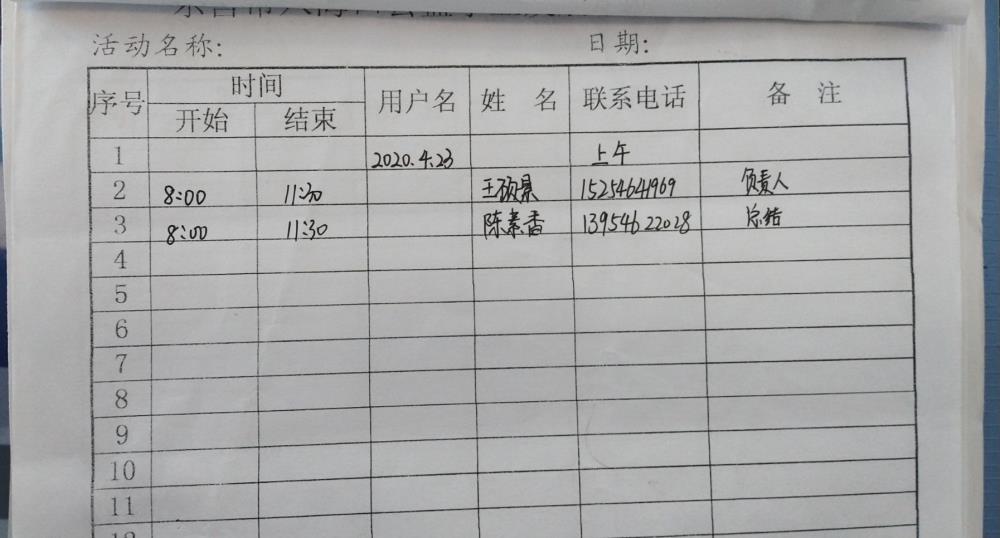 活动名称: 日期:
序号 时间 用户名 姓 名 联系电话 备 注
开始 结束
1 2020.4.23 上午
2 8:00 11:30 王硕景 15254641969 负责人
3 8:00 11:30 陈素香 13954622028 总结
4
5
6
7
8
9
10
11